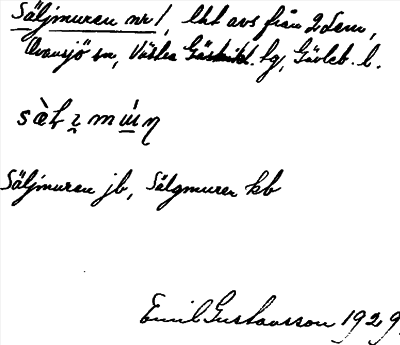 Säljmuren nr 1, lht avs från 2 dem,
Ovansjö sn, Västra Gästrikl. tg, Gävleb. l.
Säljmuren jb, Sälgmuren kb
Emil Gustavsson 1929